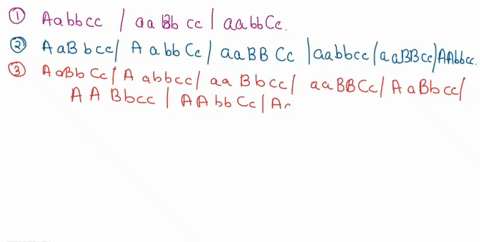 ① Aabbcc | aaBbcc | aabbCc.
② AaBbcc | AabbCc | aaBBCc | aabbcc | aaBBcc | AAbbcc.
③ AaBbCc | Aabbcc | aaBbcc | aaBBCc | AaBbcc |
AABbcc | AAbbCc | Aa